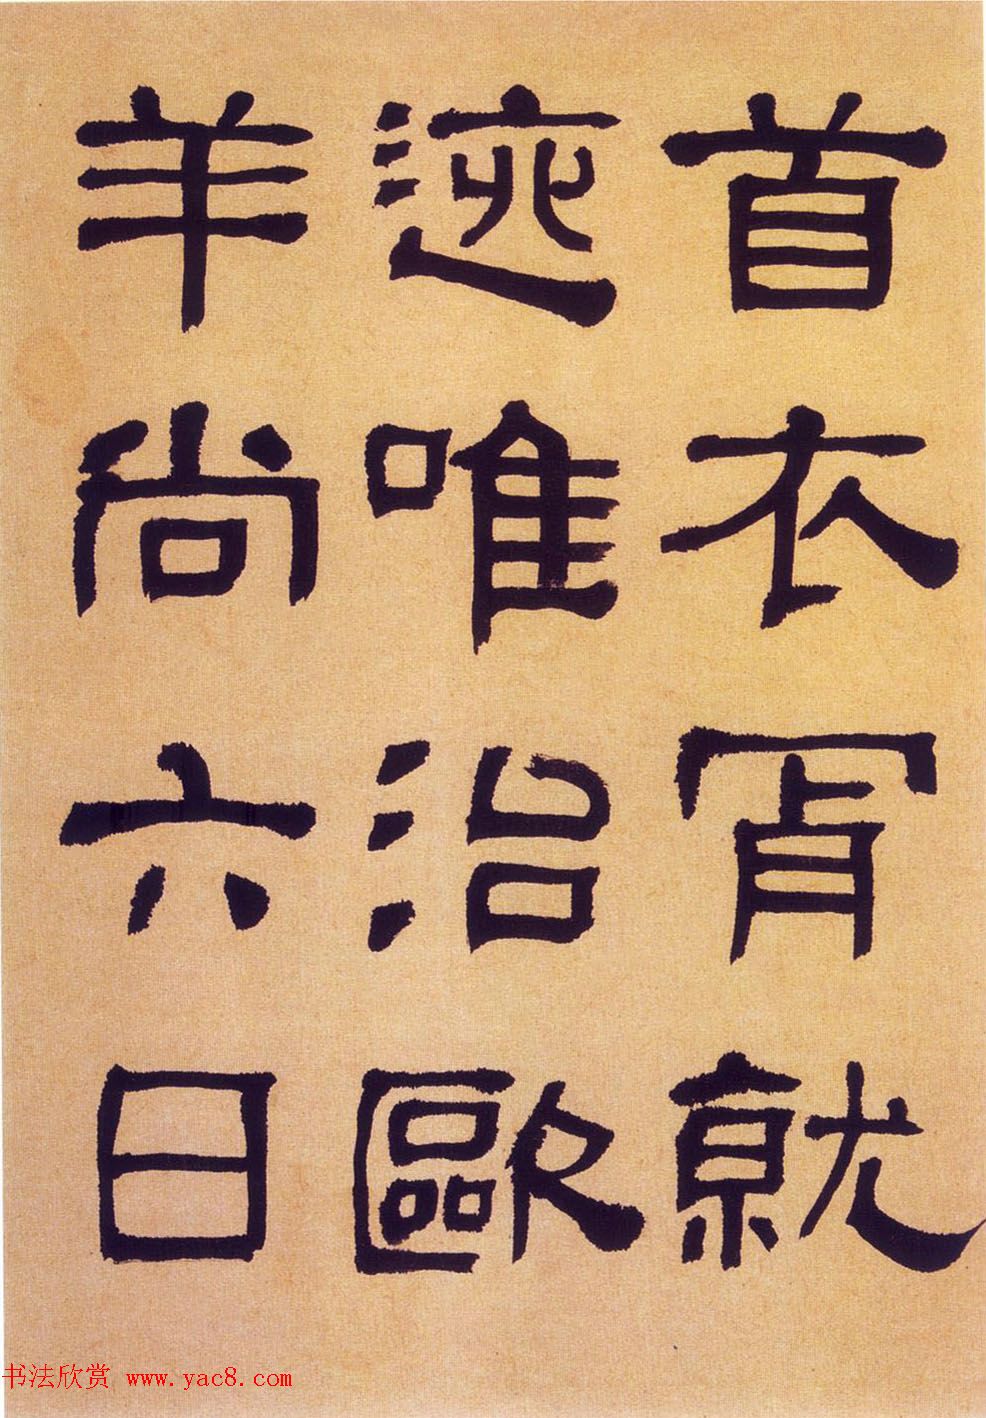 首衣就
迹唯治歐
羊尚六日
书法欣赏 www.yac8.com